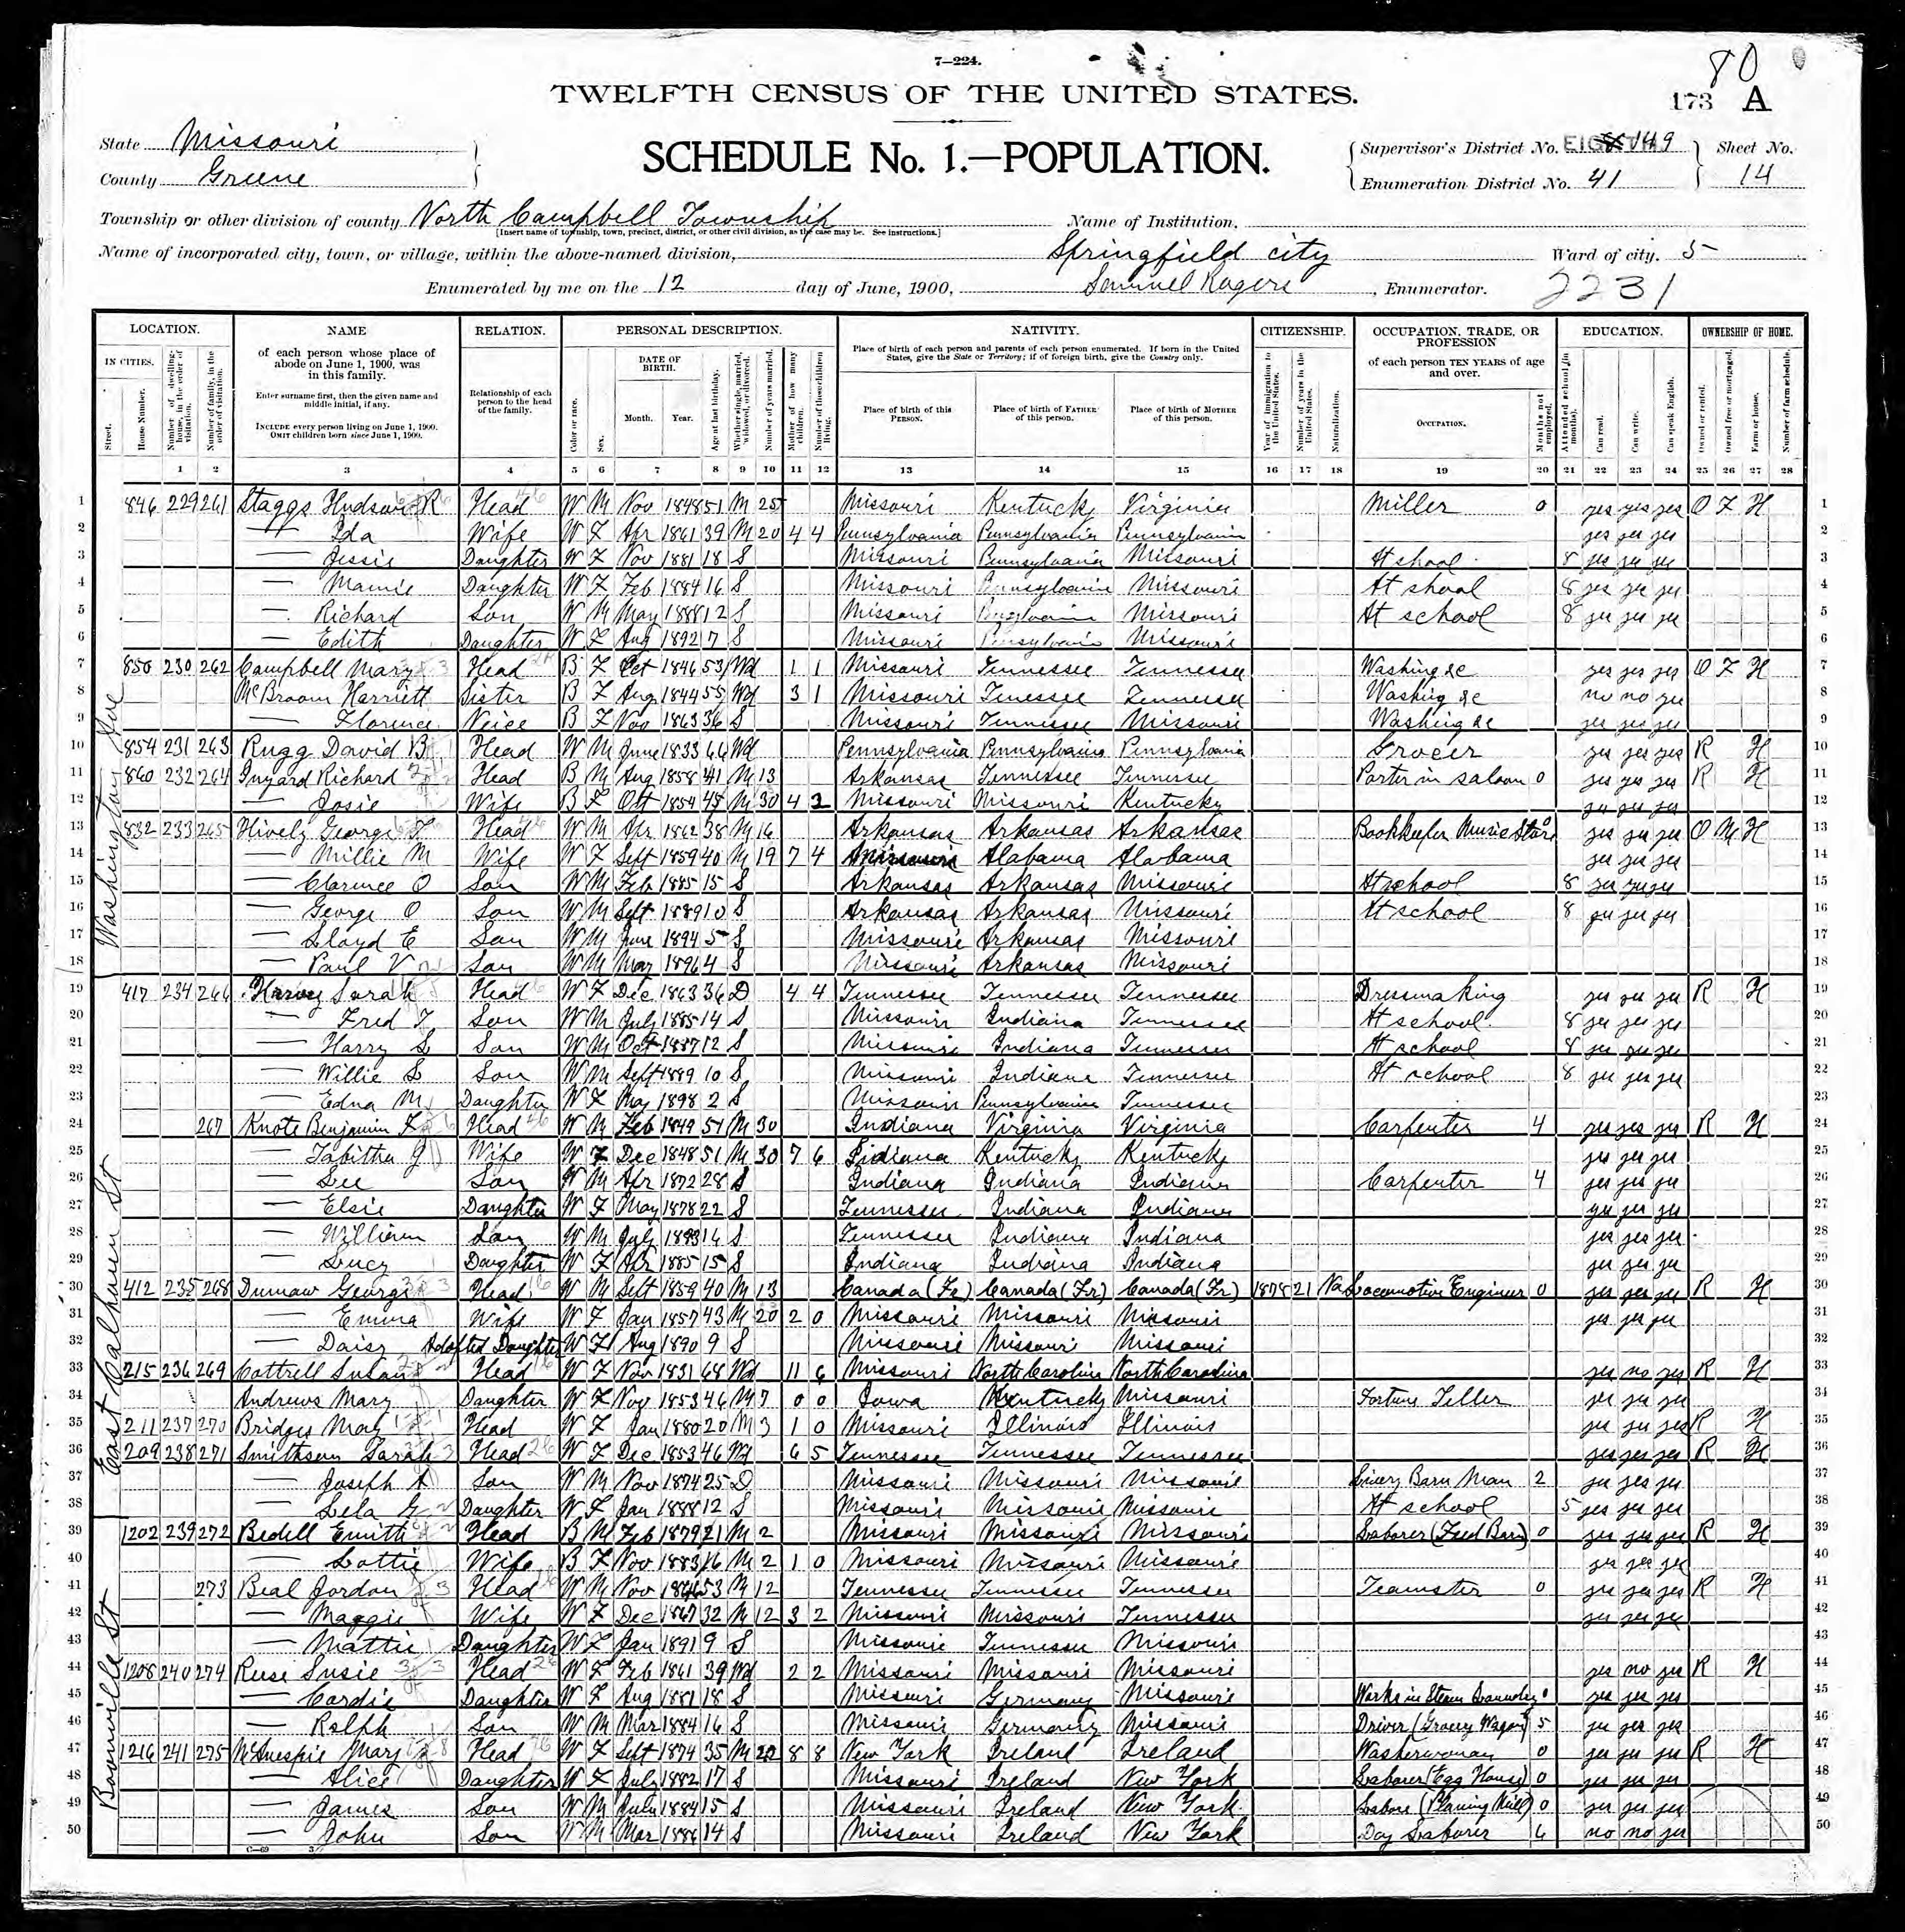 7—224.
80
TWELFTH CENSUS OF THE UNITED STATES.
173 A
State Missouri
County Greene
SCHEDULE No. 1.—POPULATION.
Supervisor's District No. 149 Sheet No.
Enumeration District No. 41 14
Township or other division of county North Campbell Township Name of Institution,
[Insert name of township, town, precinct, district, or other civil division, as the case may be. See instructions.]
Name of incorporated city, town, or village, within the above-named division, Springfield city Ward of city, 5
Enumerated by me on the 12 day of June, 1900, Samuel Rogers, Enumerator. 2231
LOCATION. NAME RELATION. PERSONAL DESCRIPTION. NATIVITY. CITIZENSHIP. OCCUPATION, TRADE, OR PROFESSION EDUCATION. OWNERSHIP OF HOME.
IN CITIES. Street. House Number. Number of dwelling-house, in the order of visitation. Number of family, in the order of visitation.
of each person whose place of abode on June 1, 1900, was in this family.
Enter surname first, then the given name and middle initial, if any.
INCLUDE every person living on June 1, 1900. OMIT children born since June 1, 1900.
Relationship of each person to the head of the family.
Color or race. Sex. DATE OF BIRTH. Month. Year. Age at last birthday. Whether single, married, widowed, or divorced. Number of years married. Mother of how many children. Number of these children living.
Place of birth of each person and parents of each person enumerated. If born in the United States, give the State or Territory; if of foreign birth, give the Country only.
Place of birth of this PERSON. Place of birth of FATHER of this person. Place of birth of MOTHER of this person.
Year of immigration to the United States. Number of years in the United States. Naturalization.
of each person TEN YEARS of age and over.
OCCUPATION. Months not employed. Attended school (in months). Can read. Can write. Can speak English. Owned or rented. Owned free or mortgaged. Farm or house. Number of farm schedule.
1 2 3 4 5 6 7 8 9 10 11 12 13 14 15 16 17 18 19 20 21 22 23 24 25 26 27 28
Washington Ave
1 846 229 261 Staggs Hudson R Head W M Nov 1848 51 M 25 Missouri Kentucky Virginia Miller 0 yes yes yes O F H 1
2 — Ida Wife W F Apr 1861 39 M 20 4 4 Pennsylvania Pennsylvania Pennsylvania yes yes yes 2
3 — Jessie Daughter W F Nov 1881 18 S Missouri Pennsylvania Missouri At school 8 yes yes yes 3
4 — Mamie Daughter W F Feb 1884 16 S Missouri Pennsylvania Missouri At shool 8 yes yes yes 4
5 — Richard Son W M May 1888 12 S Missouri Pennsylvania Missouri At school 8 yes yes yes 5
6 — Edith Daughter W F Aug 1892 7 S Missouri Pennsylvania Missouri 6
7 850 230 262 Campbell Mary Head B F Oct 1846 53 Wd 1 1 Missouri Tennessee Tennessee Washing &c yes yes yes O F H 7
8 McBroom Harriett Sister B F Aug 1844 55 Wd 3 1 Missouri Tennessee Tennessee Washing &c no no yes 8
9 — Florence Neice B F Nov 1863 36 S Missouri Tennessee Missouri Washing &c yes yes yes 9
10 854 231 263 Rugg David B Head W M June 1833 66 Wd Pennsylvania Pennsylvania Pennsylvania Grocer yes yes yes R H 10
11 860 232 264 Inyard Richard Head B M Aug 1858 41 M 13 Arkansas Tennessee Tennessee Porter in saloon 0 yes yes yes R H 11
12 — Josie Wife B F Oct 1854 45 M 30 4 2 Missouri Missouri Kentucky yes yes yes 12
13 832 233 265 Hively George F Head W M Apr 1862 38 M 16 Arkansas Arkansas Arkansas Bookkeeper Music Store 0 yes yes yes O M H 13
14 — Millie M Wife W F Sept 1859 40 M 19 7 4 Missouri Alabama Alabama yes yes yes 14
15 — Clarence O Son W M Feb 1885 15 S Arkansas Arkansas Missouri At school 8 yes yes yes 15
16 — George O Son W M Sept 1889 10 S Arkansas Arkansas Missouri At school 8 yes yes yes 16
17 — Lloyd E Son W M June 1894 5 S Missouri Arkansas Missouri 17
18 — Paul V Son W M May 1896 4 S Missouri Arkansas Missouri 18
East Calhoun St
19 417 234 266 Harvey Sarah Head W F Dec 1863 36 D 4 4 Tennessee Tennessee Tennessee Dressmaking yes yes yes R H 19
20 — Fred T Son W M July 1885 14 S Missouri Indiana Tennessee At school 8 yes yes yes 20
21 — Harry L Son W M Oct 1887 12 S Missouri Indiana Tennessee At school 8 yes yes yes 21
22 — Willie L Son W M Sept 1889 10 S Missouri Indiana Tennessee At school 8 yes yes yes 22
23 — Edna M Daughter W F May 1898 2 S Missouri Pennsylvania Tennessee 23
24 267 Knote Benjamin F Head W M Feb 1849 51 M 30 Indiana Virginia Virginia Carpenter 4 yes yes yes R H 24
25 — Tabitha J Wife W F Dec 1848 51 M 30 7 6 Indiana Kentucky Kentucky yes yes yes 25
26 — Lee Son W M Apr 1872 28 S Indiana Indiana Indiana Carpenter 4 yes yes yes 26
27 — Elsie Daughter W F May 1878 22 S Tennessee Indiana Indiana yes yes yes 27
28 — William Son W M July 1883 16 S Tennessee Indiana Indiana yes yes yes 28
29 — Lucy Daughter W F Apr 1885 15 S Indiana Indiana Indiana yes yes yes 29
30 412 235 268 Dumaw George Head W M Sept 1859 40 M 13 Canada (Fr) Canada (Fr) Canada (Fr) 1878 21 Na Locomotive Engineer 0 yes yes yes R H 30
31 — Emma Wife W F Jan 1857 43 M 20 2 0 Missouri Missouri Missouri yes yes yes 31
32 — Daisy Adopted Daughter W F Aug 1890 9 S Missouri Missouri Missouri 32
33 215 236 269 Cottrell Susan Head W F Nov 1831 68 Wd 11 6 Missouri North Carolina North Carolina yes no yes R H 33
34 Andrews Mary Daughter W F Nov 1853 46 M 7 0 0 Iowa Kentucky Missouri Fortune Teller yes yes yes 34
35 211 237 270 Bridges May Head W F Jan 1880 20 M 3 1 0 Missouri Illinois Illinois yes yes yes R H 35
36 209 238 271 Smithson Sarah Head W F Dec 1853 46 Wd 6 5 Tennessee Tennessee Tennessee yes yes yes R H 36
37 — Joseph A Son W M Nov 1874 25 D Missouri Missouri Missouri Livery Barn Man 2 yes yes yes 37
38 — Lela G Daughter W F Jan 1888 12 S Missouri Missouri Missouri At school 5 yes yes yes 38
Boonville St
39 1202 239 272 Bedell Emith Head B M Feb 1879 21 M 2 Missouri Missouri Missouri Laborer (Feed Barn) 0 yes yes yes R H 39
40 — Lottie Wife B F Nov 1883 16 M 2 1 0 Missouri Missouri Missouri yes yes yes 40
41 273 Beal Jordan Head W M Nov 1846 53 M 12 Tennessee Tennessee Tennessee Teamster 0 yes yes yes R H 41
42 — Maggie Wife W F Dec 1867 32 M 12 3 2 Missouri Missouri Tennessee yes yes yes 42
43 — Mattie Daughter W F Jan 1891 9 S Missouri Tennessee Missouri 43
44 1208 240 274 Reese Susie Head W F Feb 1861 39 Wd 2 2 Missouri Missouri Missouri yes no yes R H 44
45 — Cordie Daughter W F Aug 1881 18 S Missouri Germany Missouri Works in Steam Laundry 0 yes yes yes 45
46 — Ralph Son W M Mar 1884 16 S Missouri Germany Missouri Driver (Grocery Wagon) 5 yes yes yes 46
47 1216 241 275 McAnespie Mary Head W F Sept 1874 35 M 22 8 8 New York Ireland Ireland Washerwoman 0 yes yes yes R H 47
48 — Alice Daughter W F July 1882 17 S Missouri Ireland New York Laborer (Egg House) 0 yes yes yes 48
49 — James Son W M July 1884 15 S Missouri Ireland New York Labore (Planing Mill) 0 yes yes yes 49
50 — John Son W M Mar 1886 14 S Missouri Ireland New York Day Laborer 6 no no yes 50
C—69